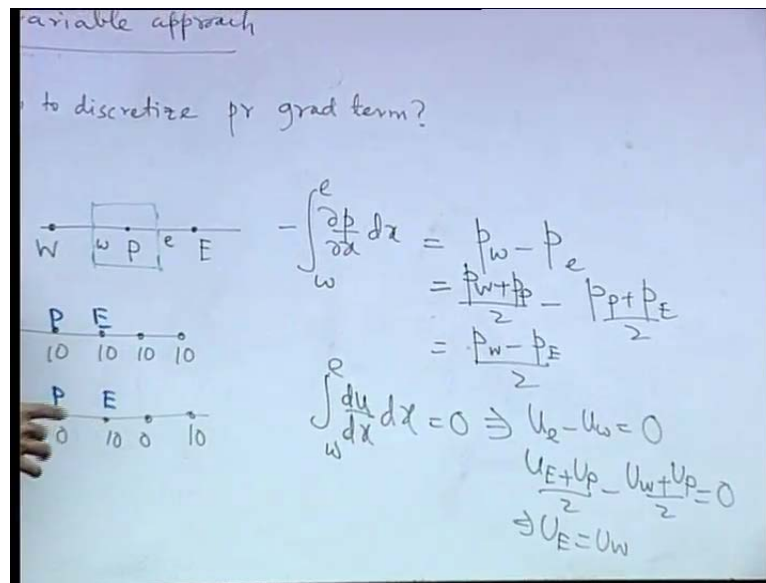 ariable approach
to discretize pr grad term?
W w P e E
-∫_w^e ∂p/∂x dx = p_w - p_e
= (p_W + p_P)/2 - (p_P + p_E)/2
= (p_W - p_E)/2
P E
10 10 10 10
P E
0 10 0 10
∫_w^e du/dx dx = 0 ⇒ u_e - u_w = 0
(u_E + u_P)/2 - (u_W + u_P)/2 = 0
⇒ u_E = u_W